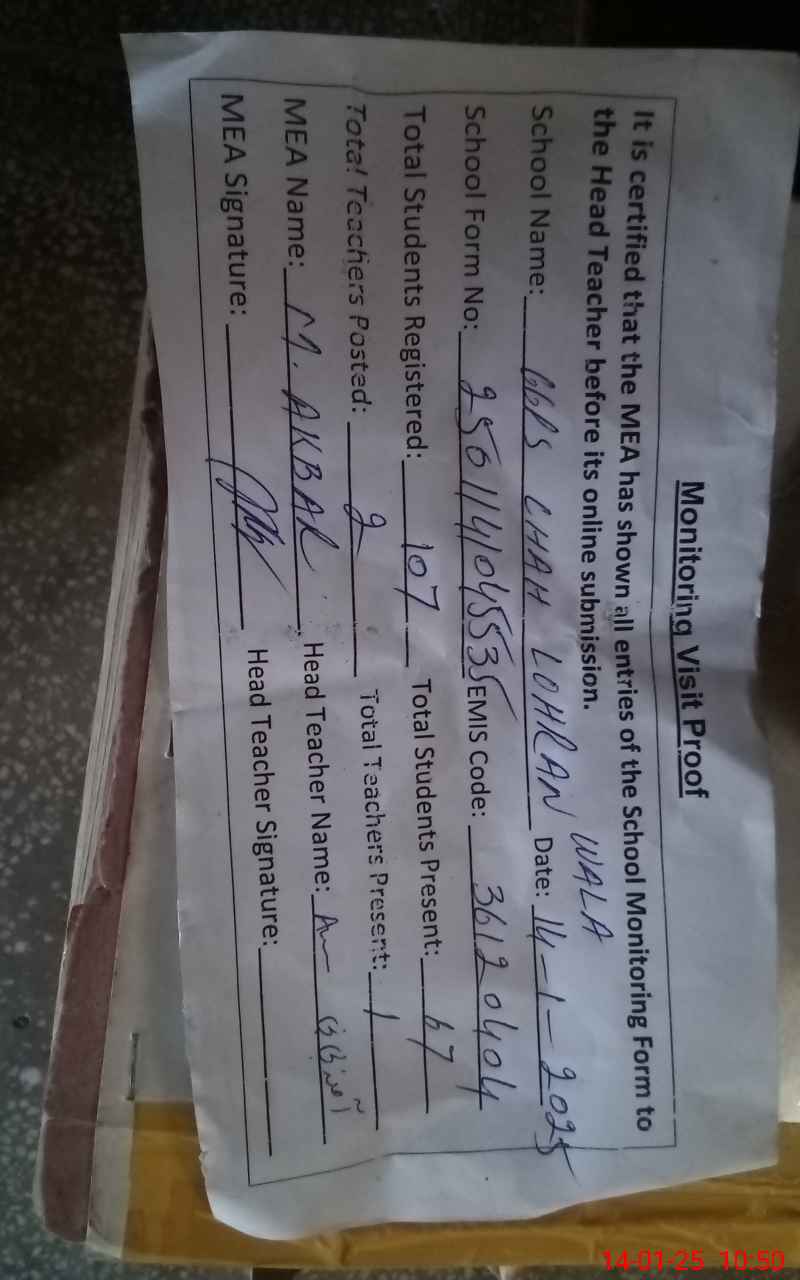 Monitoring Visit Proof
It is certified that the MEA has shown all entries of the School Monitoring Form to
the Head Teacher before its online submission.
School Name: GGPS CHAH LOHRAN WALA Date: 14-1-2025
School Form No: 2501141045535 EMIS Code: 36120404
Total Students Registered: 107 Total Students Present: 67
Total Teachers Posted: 2 Total Teachers Present: 1
MEA Name: M. AKBAR Head Teacher Name:
MEA Signature: Head Teacher Signature:
14-01-25 10:50